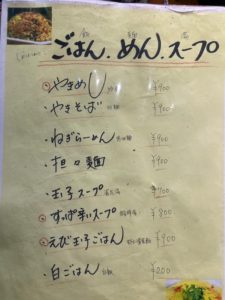 飯 麺 湯
ごはん.めん.スープ
・やきめし 炒飯 ¥900
・やきそば 炒麺 ¥900
・ねぎらーめん ¥900
・担々麺 ¥900
・玉子スープ ¥700
・すっぱ辛いスープ 酸辣湯 ¥800
・えび玉子ごはん ¥900
・白ごはん 白飯 ¥200